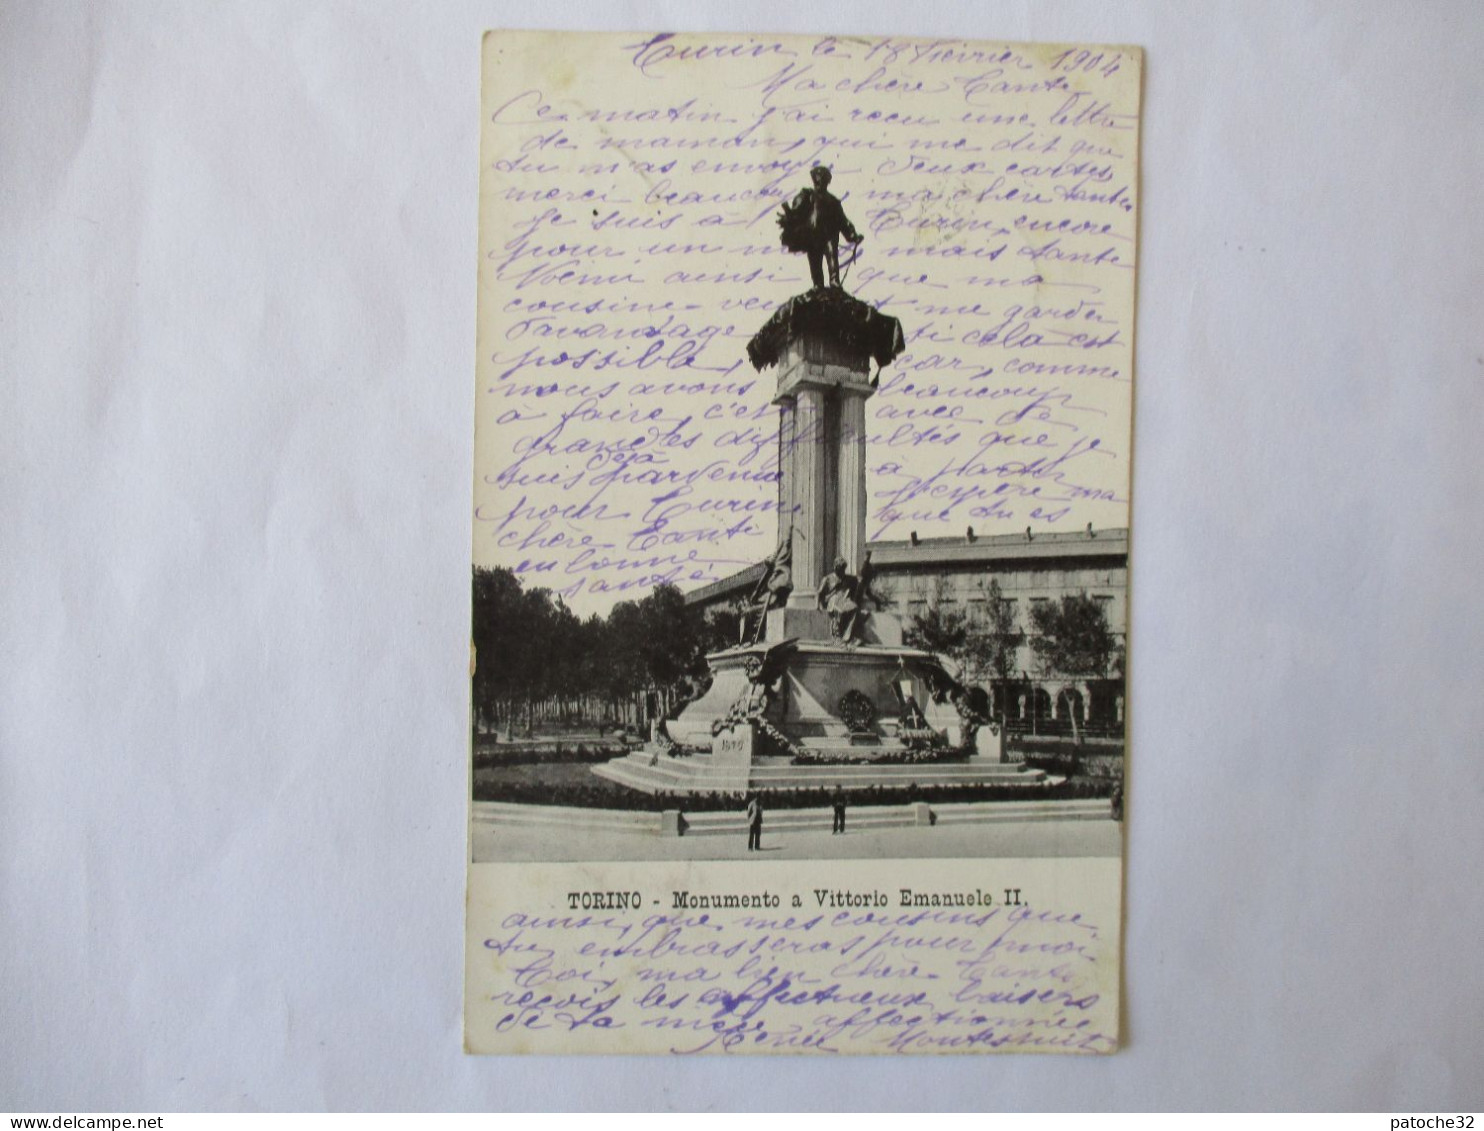 Turin le 18 Février 1904
Ma chère Tante
Ce matin j'ai reçu une lettre
de maman, qui me dit que
tu m'as envoyé deux cartes,
merci beaucoup, ma chère tante,
Je suis à Turin, encore
pour un mois, mais tante
Noémi ainsi que ma
cousine me garder
davantage si cela est
possible, car, comme
nous avons beaucoup
à faire, c'est avec de
grandes difficultés que je
suis déjà parvenue à
pour Turin J'espère ma
chère Tante que tu es
en bonne
santé
1879
TORINO - Monumento a Vittorio Emanuele II.
ainsi, que mes cousins que
tu embrasseras pour moi
Toi, ma bien chère Tante
reçois les affectueux baisers
de ta nièce affectionnée
Renée
patoche32